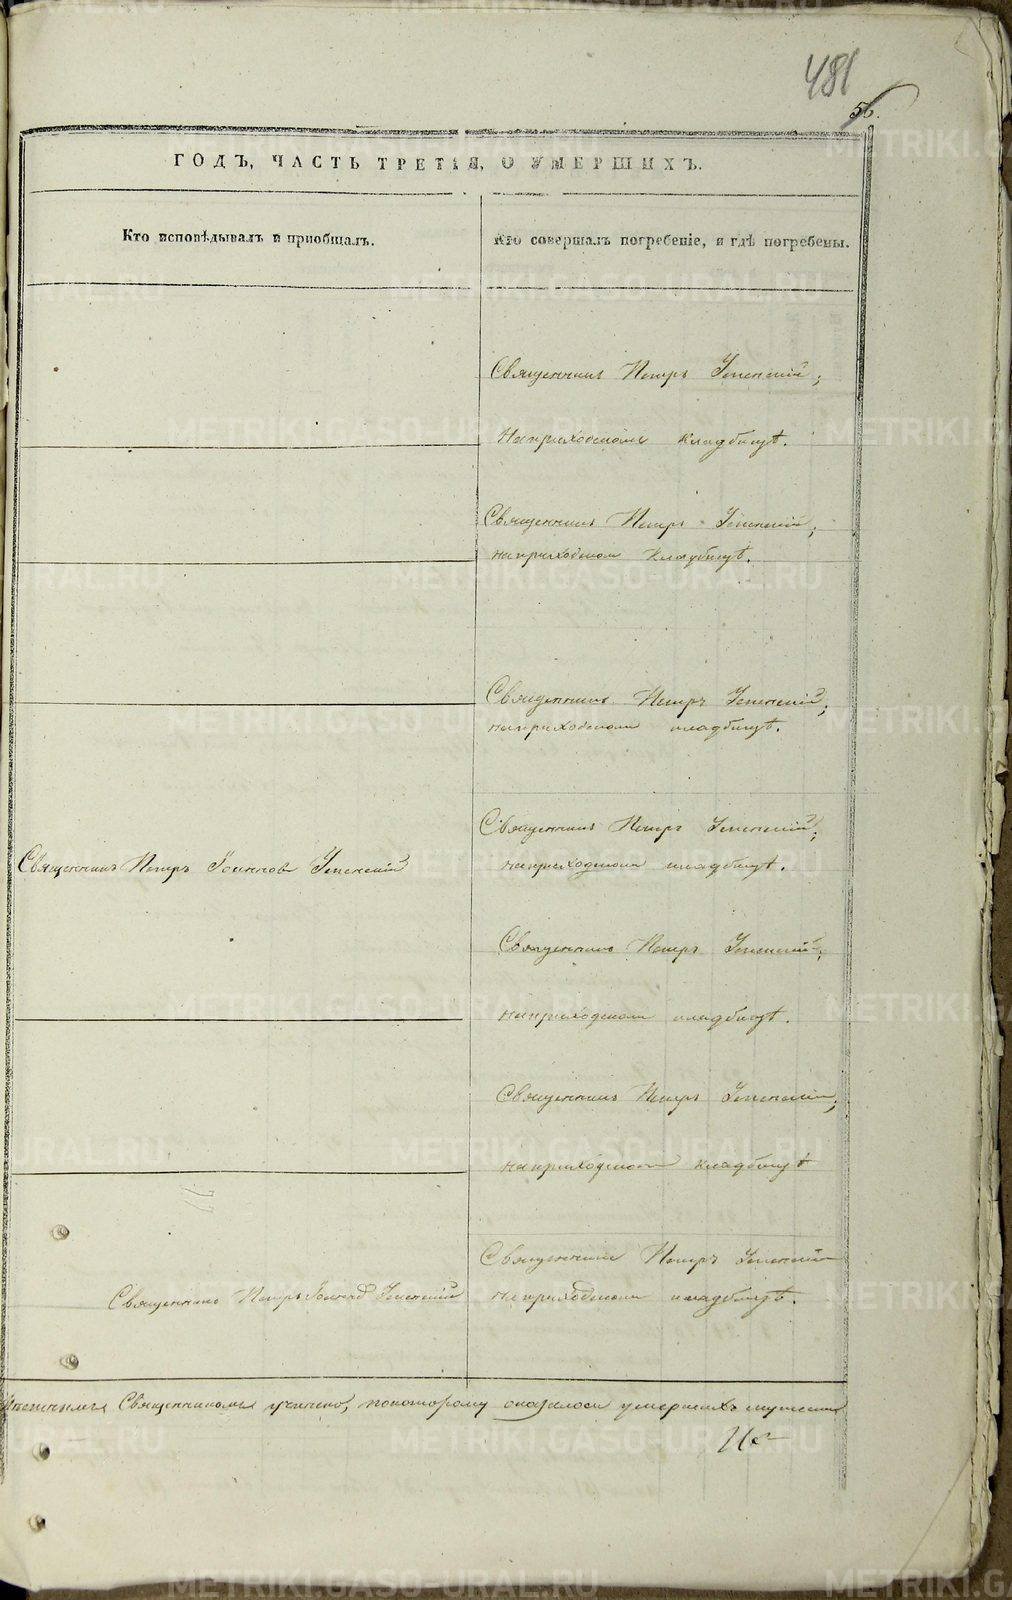 481
56.
ГОДЪ, ЧАСТЬ ТРЕТІЯ, О УМЕРШИХЪ.
Кто исповѣдывалъ и пріобщалъ.
Кто совершалъ погребеніе, и гдѣ погребены.
Священникъ Петръ Успенскій;
На приходскомъ кладбищѣ.
Священникъ Петръ Успенскій;
на приходском кладбищѣ.
Священникъ Петръ Успенскій;
на приходском кладбищѣ.
Священникъ Петръ Іоаннов Успенскій
Священникъ Петръ Успенскій;
на приходском кладбищѣ.
Священникъ Петръ Успенскій;
на приходском кладбищѣ.
Священникъ Петръ Успенскій;
на приходском кладбищѣ
Священникъ Петръ Іоаннов Успенскій
Священникъ Петръ Успенскій
на приходском кладбищѣ.
Священникомъ учинено, по которому оказалось умершихъ мужеска
METRIKI.GASO-URAL.RU